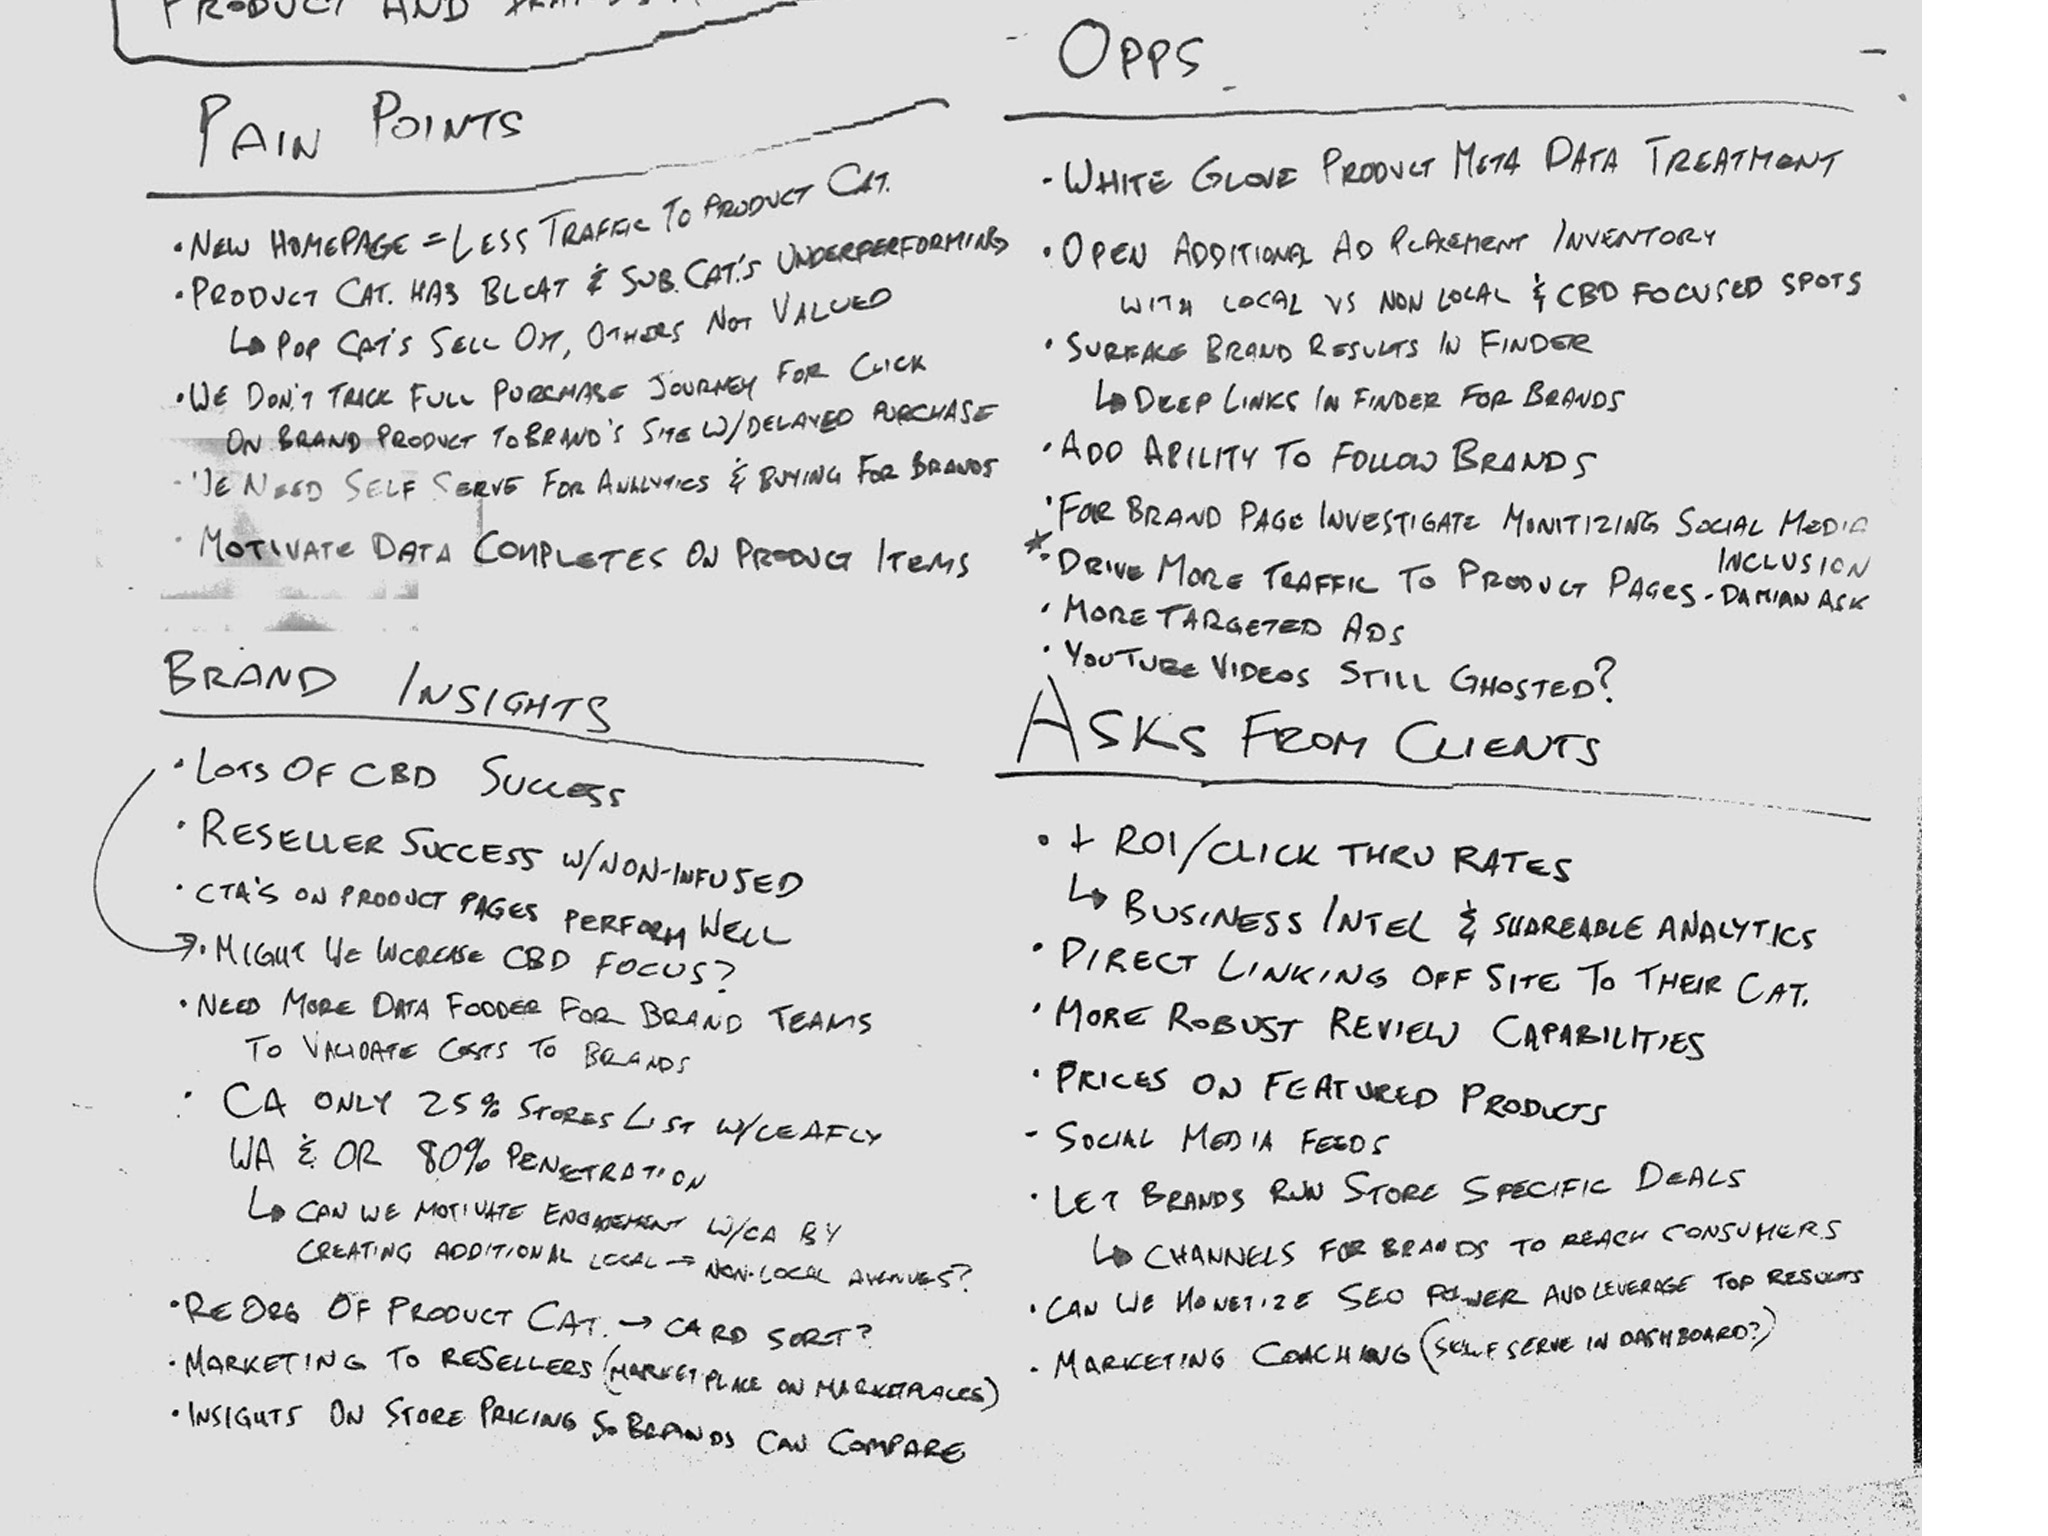 PRODUCT AND
PAIN POINTS
• NEW HOMEPAGE = LESS TRAFFIC TO PRODUCT CAT.
• PRODUCT CAT. HAS BLOAT & SUB.CAT.'S UNDERPERFORMING
↳ POP CAT'S SELL OUT, OTHERS NOT VALUED
• WE DON'T TRACK FULL PURCHASE JOURNEY FOR CLICK
ON BRAND PRODUCT TO BRAND'S SITE W/DELAYED PURCHASE
• WE NEED SELF SERVE FOR ANALYTICS & BUYING FOR BRANDS
• MOTIVATE DATA COMPLETES ON PRODUCT ITEMS
BRAND INSIGHTS
• LOTS OF CBD SUCCESS
• RESELLER SUCCESS W/NON-INFUSED
• CTA'S ON PRODUCT PAGES PERFORM WELL
→ • MIGHT WE INCREASE CBD FOCUS?
• NEED MORE DATA FODDER FOR BRAND TEAMS
TO VALIDATE COSTS TO BRANDS
• CA ONLY 25% STORES LIST W/LEAFLY
WA & OR 80% PENETRATION
↳ CAN WE MOTIVATE ENGAGEMENT W/CA BY
CREATING ADDITIONAL LOCAL → NON-LOCAL AVENUES?
• RE ORG OF PRODUCT CAT. → CARD SORT?
• MARKETING TO RESELLERS (MARKETPLACE ON MARKETPLACES)
• INSIGHTS ON STORE PRICING SO BRANDS CAN COMPARE
OPPS
• WHITE GLOVE PRODUCT META DATA TREATMENT
• OPEN ADDITIONAL AD PLACEMENT INVENTORY
WITH LOCAL VS NON LOCAL & CBD FOCUSED SPOTS
• SURFACE BRAND RESULTS IN FINDER
↳ DEEP LINKS IN FINDER FOR BRANDS
• ADD ABILITY TO FOLLOW BRANDS
• FOR BRAND PAGE INVESTIGATE MONITIZING SOCIAL MEDIA
INCLUSION
* • DRIVE MORE TRAFFIC TO PRODUCT PAGES - DAMIAN ASK
• MORE TARGETED ADS
• YOUTUBE VIDEOS STILL GHOSTED?
ASKS FROM CLIENTS
• + ROI/CLICK THRU RATES
↳ BUSINESS INTEL & SHAREABLE ANALYTICS
• DIRECT LINKING OFF SITE TO THEIR CAT.
• MORE ROBUST REVIEW CAPABILITIES
• PRICES ON FEATURED PRODUCTS
- SOCIAL MEDIA FEEDS
• LET BRANDS RUN STORE SPECIFIC DEALS
↳ CHANNELS FOR BRANDS TO REACH CONSUMERS
• CAN WE MONETIZE SEO POWER AND LEVERAGE TOP RESULTS
• MARKETING COACHING (SELF SERVE IN DASHBOARD?)